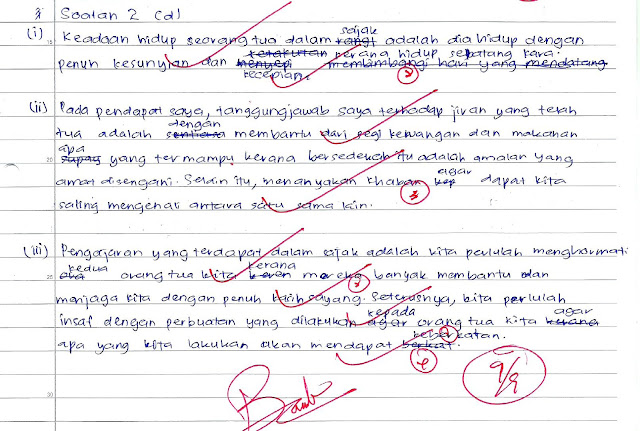 Soalan 2 (d)
sajak
(i) 15 Keadaan hidup seorang tua dalam adalah dia hidup dengan
ketakutan kerana hidup sebatang kara.
penuh kesunyian dan menyepi menambangi hari yang mendatang
kesepian. 2
(ii) Pada pendapat saya, tanggungjawab saya terhadap jiran yang telah
dengan
tua adalah sentiasa membantu dari segi kewangan dan makanan
apa
20 supaya yang termampu kerana bersedekah itu adalah amalan yang
agar
amat disenangi. Selain itu, menanyakan khabar dapat kita
saling mengenal antara satu sama lain. 3
(iii) Pengajaran yang terdapat dalam sajak adalah kita perlulah menghormati
kedua kerana
25 orang tua kita mereka banyak membantu dan
menjaga kita dengan penuh kasih sayang. Seterusnya, kita perlulah
kepada agar
insaf dengan perbuatan yang dilakukan agar orang tua kita kerana
keberkatan.
apa yang kita lakukan akan mendapat berkat.
9/9
30